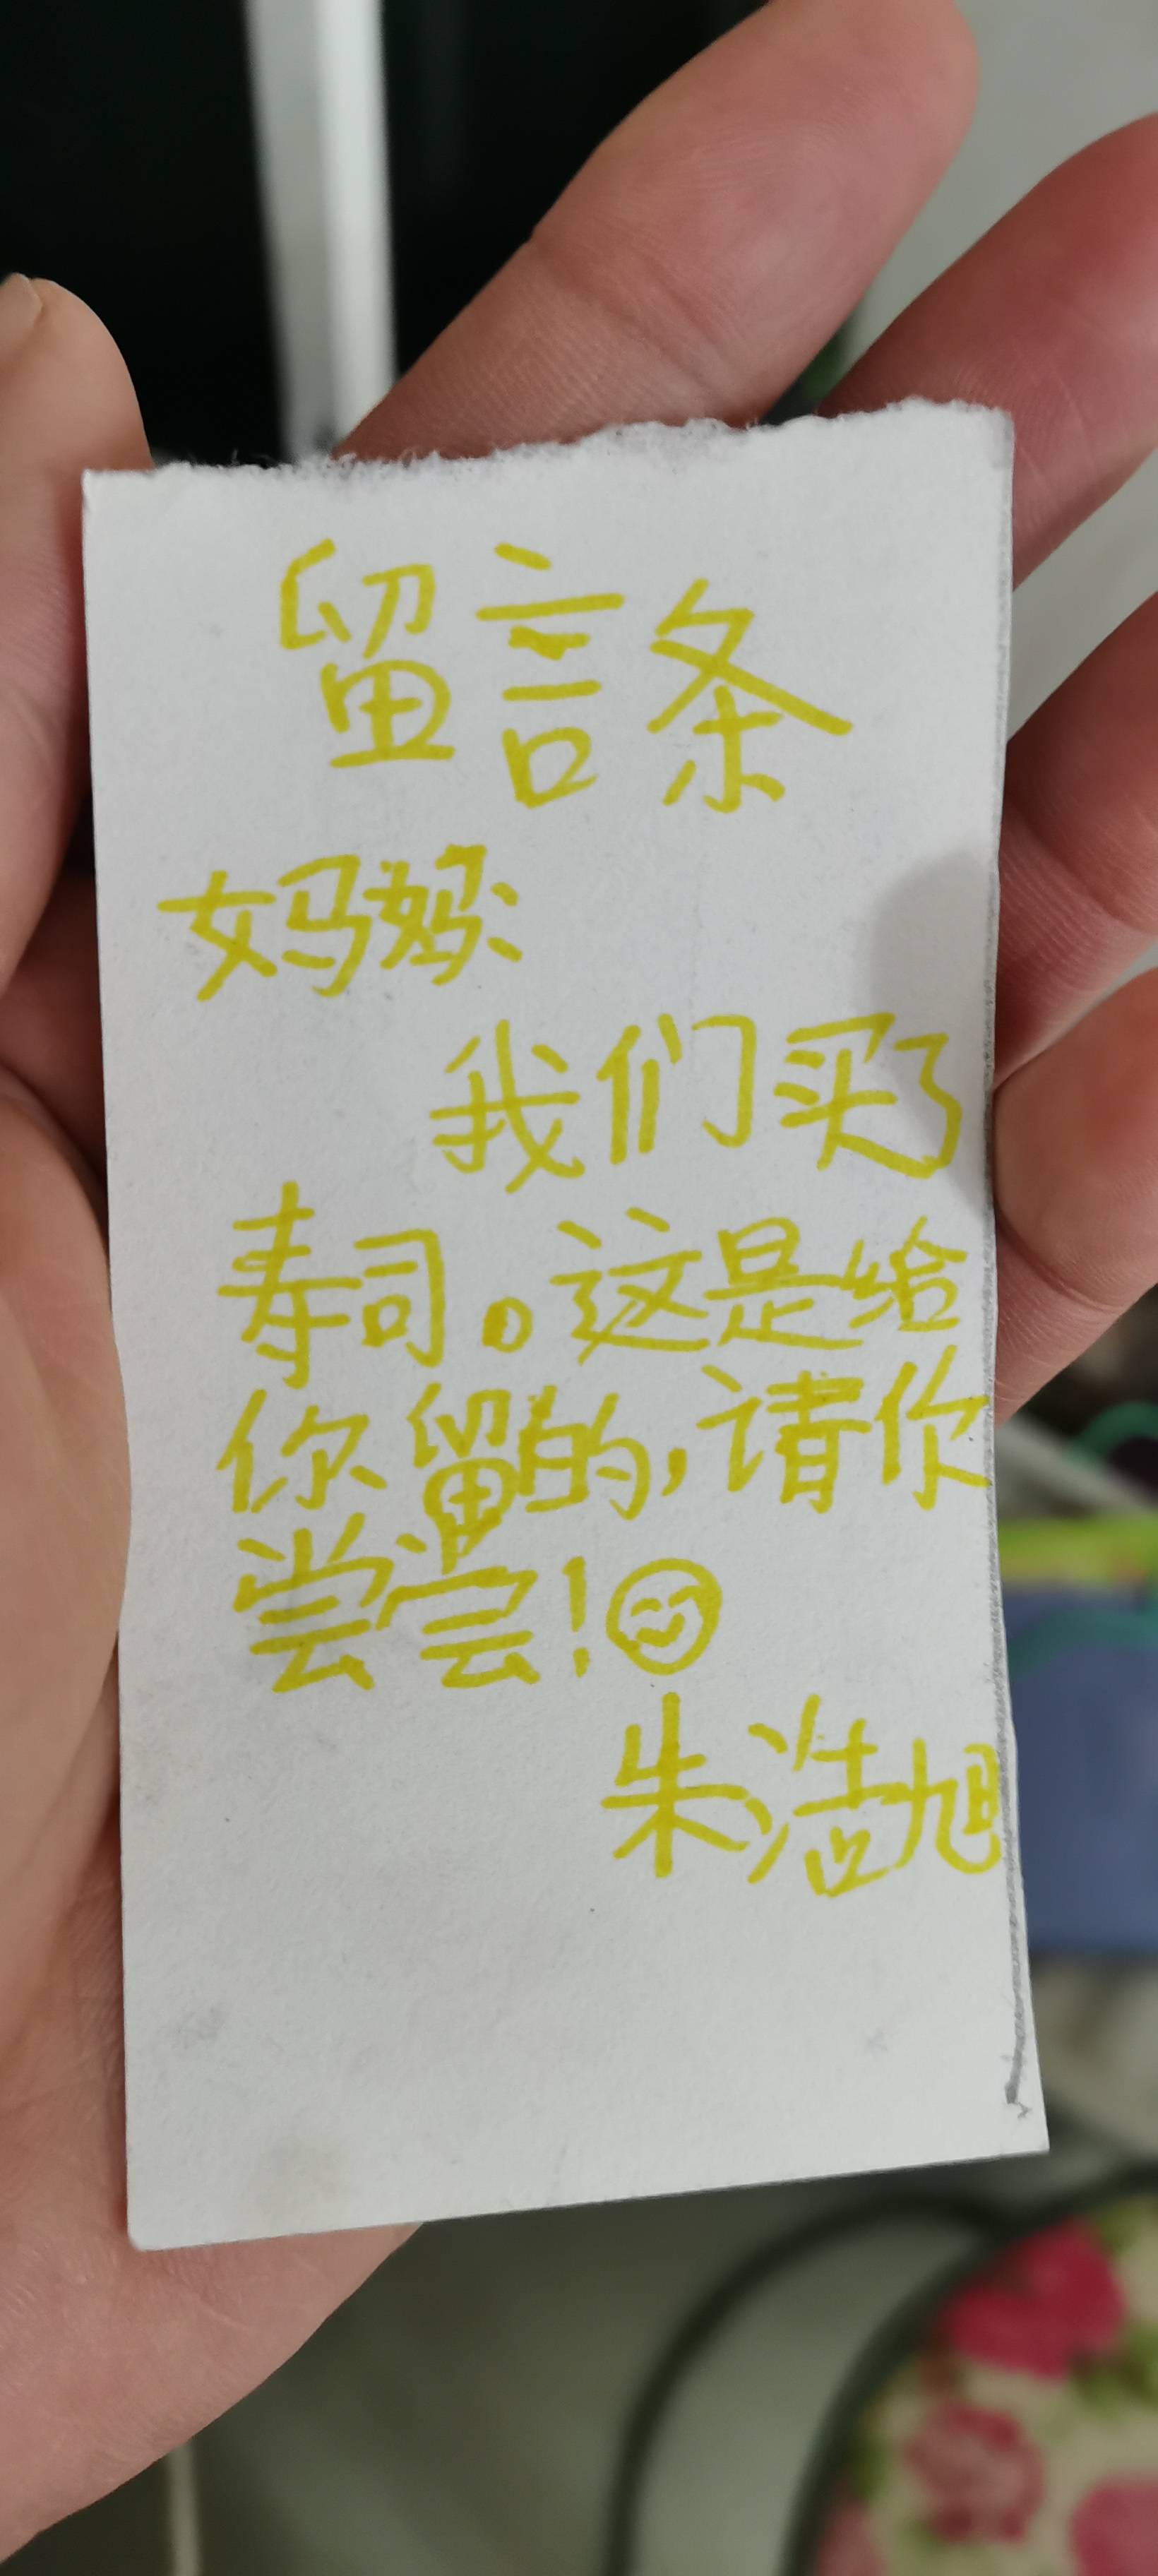 留言条
妈妈：
我们买了
寿司。这是给
你留的，请你
尝尝！
朱浩旭